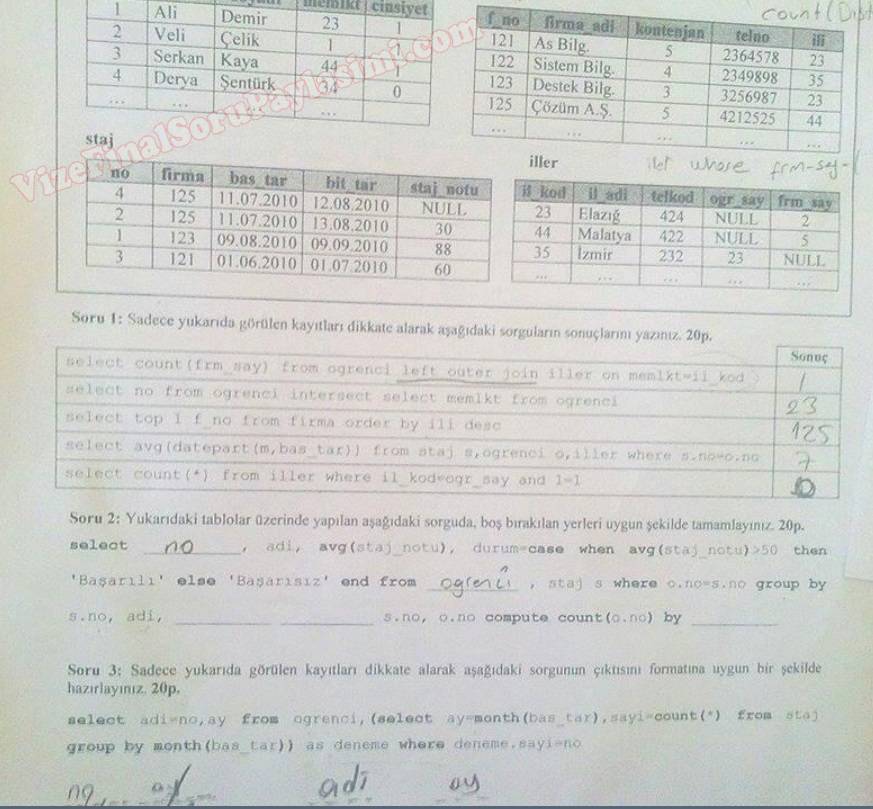 count(Dist
memlkt cinsiyet
1 Ali Demir 23 1
2 Veli Çelik 1 1
3 Serkan Kaya 44 1
4 Derya Şentürk 34 0
... ... ...
f_no firma_adi kontenjan telno ili
121 As Bilg. 5 2364578 23
122 Sistem Bilg. 4 2349898 35
123 Destek Bilg. 3 3256987 23
125 Çözüm A.Ş. 5 4212525 44
... ... ... ... ...
VizeFinalSoruPaylasimi.com
staj
no firma bas_tar bit_tar staj_notu
4 125 11.07.2010 12.08.2010 NULL
2 125 11.07.2010 13.08.2010 30
1 123 09.08.2010 09.09.2010 88
3 121 01.06.2010 01.07.2010 60
iller
where frm-say-
il_kod il_adi telkod ogr_say frm_say
23 Elazığ 424 NULL 2
44 Malatya 422 NULL 5
35 İzmir 232 23 NULL
... ... ... ... ...
Soru 1: Sadece yukarıda görülen kayıtları dikkate alarak aşağıdaki sorguların sonuçlarını yazınız. 20p.
Sonuç
select count(frm_say) from ogrenci left outer join iller on memlkt=il_kod 1
select no from ogrenci intersect select memlkt from ogrenci 23
select top 1 f_no from firma order by ili desc 125
select avg(datepart(m,bas_tar)) from staj s,ogrenci o,iller where s.no=o.no 7
select count(*) from iller where il_kod=ogr_say and 1=1 0
Soru 2: Yukarıdaki tablolar üzerinde yapılan aşağıdaki sorguda, boş bırakılan yerleri uygun şekilde tamamlayınız. 20p.
select no, adi, avg(staj_notu), durum=case when avg(staj_notu)>50 then
'Başarılı' else 'Başarısız' end from ogrenci, staj s where o.no=s.no group by
s.no, adi, ________ ________ s.no, o.no compute count(o.no) by ________
Soru 3: Sadece yukarıda görülen kayıtları dikkate alarak aşağıdaki sorgunun çıktısını formatına uygun bir şekilde
hazırlayınız. 20p.
select adi=no,ay from ogrenci,(select ay=month(bas_tar),sayi=count(*) from staj
group by month(bas_tar)) as deneme where deneme.sayi=no
no ay adi ay